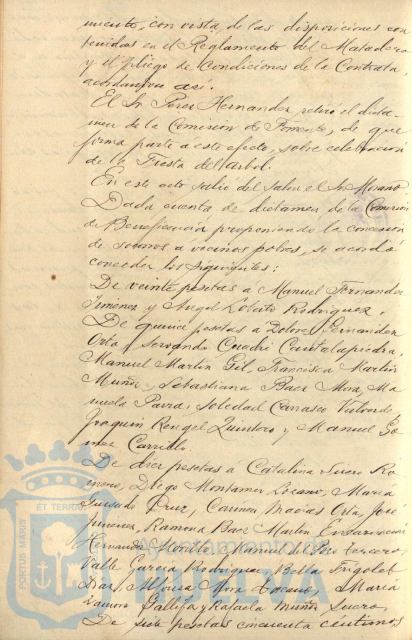 miento, con vista de las disposiciones con
tenidas en el Reglamento del Matadero
y el pliego de Condiciones de la Contrata,
acordaron así.
El Sr. Perez Hernandez retiró el dicta-
men de la Comisión de Fomento, de que
forma parte a este efecto, sobre celebración
de la Fiesta del arbol.
En este acto salio del Salon el Sr. Morano
Dada cuenta de dictamen de la Comisión
de Beneficencia proponiendo la concesion
de socorros a vecinos pobres, se acordó
conceder los siguientes:
De veinte pesetas a Manuel Fernandez
Jimenez y Angel Loberto Rodriguez.
De quince pesetas a Dolores Fernandez
Orta, Servando Cuadri Cantalapiedra,
Manuel Martin Gil, Francisca Martin
Muñiz, Sebastiana Baez Mora, Ma
nuela Parra, Soledad Carrasco Valverde,
Joaquin Rengel Quintero y Manuel Go
mez Carrillo.
De diez pesetas a Catalina Suero Ro
Diego Montaner Lozano, Maria
Cruz, Carmen Macias Orta, José
Jimenez, Ramona Baez Martin, Encarnacion
Hernandez Morillo, Manuel tercero,
Valle Garcia Rodriguez, Bella Frigolet
Diaz, Mora Maria
Zamora y Rafaela Muñiz Suero,
De siete pesetas cincuenta centimos
PORTUS MARIS ET TERRAE
Ayuntamiento de
HUELVA